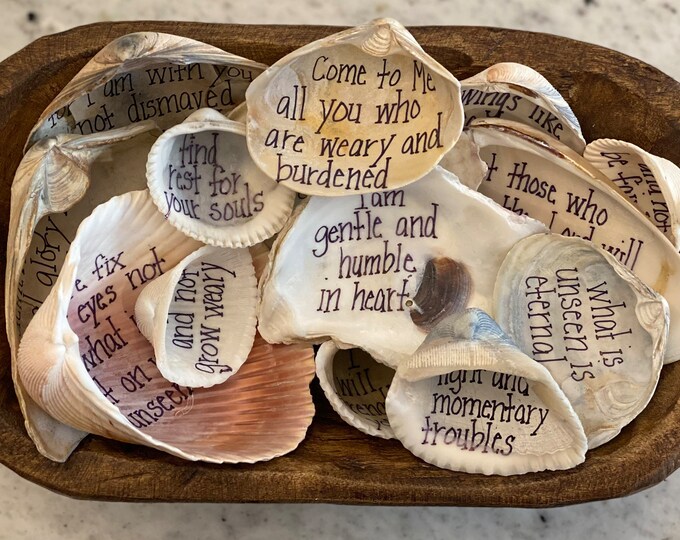 I am with you
not dismayed
Come to Me
all you who
are weary and
burdened
wings like
find
rest for
your souls
I am
gentle and
humble
in heart
those who
the Lord will
and not
be
all
glory
fix
eyes not
what is
on
unseen
and not
grow weary
what is
unseen is
eternal
I
will
light and
momentary
troubles